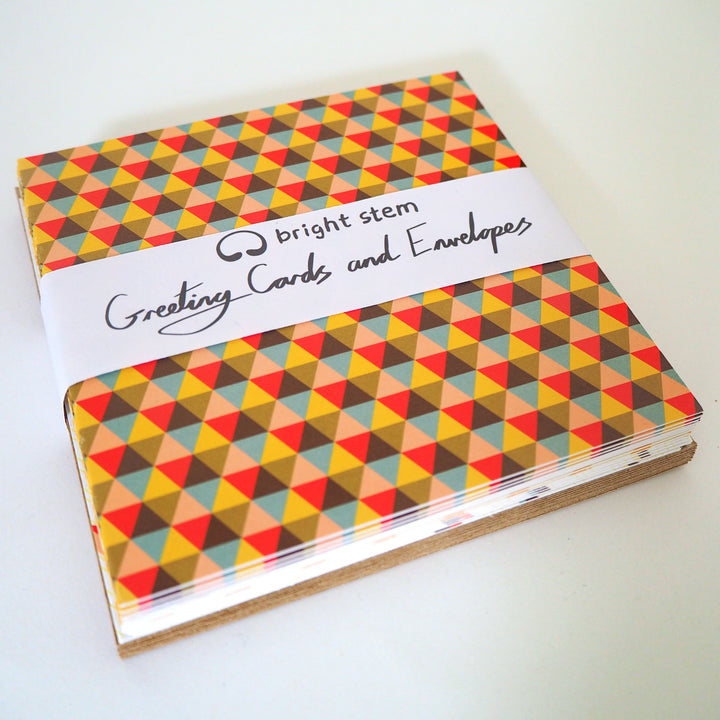 bright stem
Greeting Cards and Envelopes